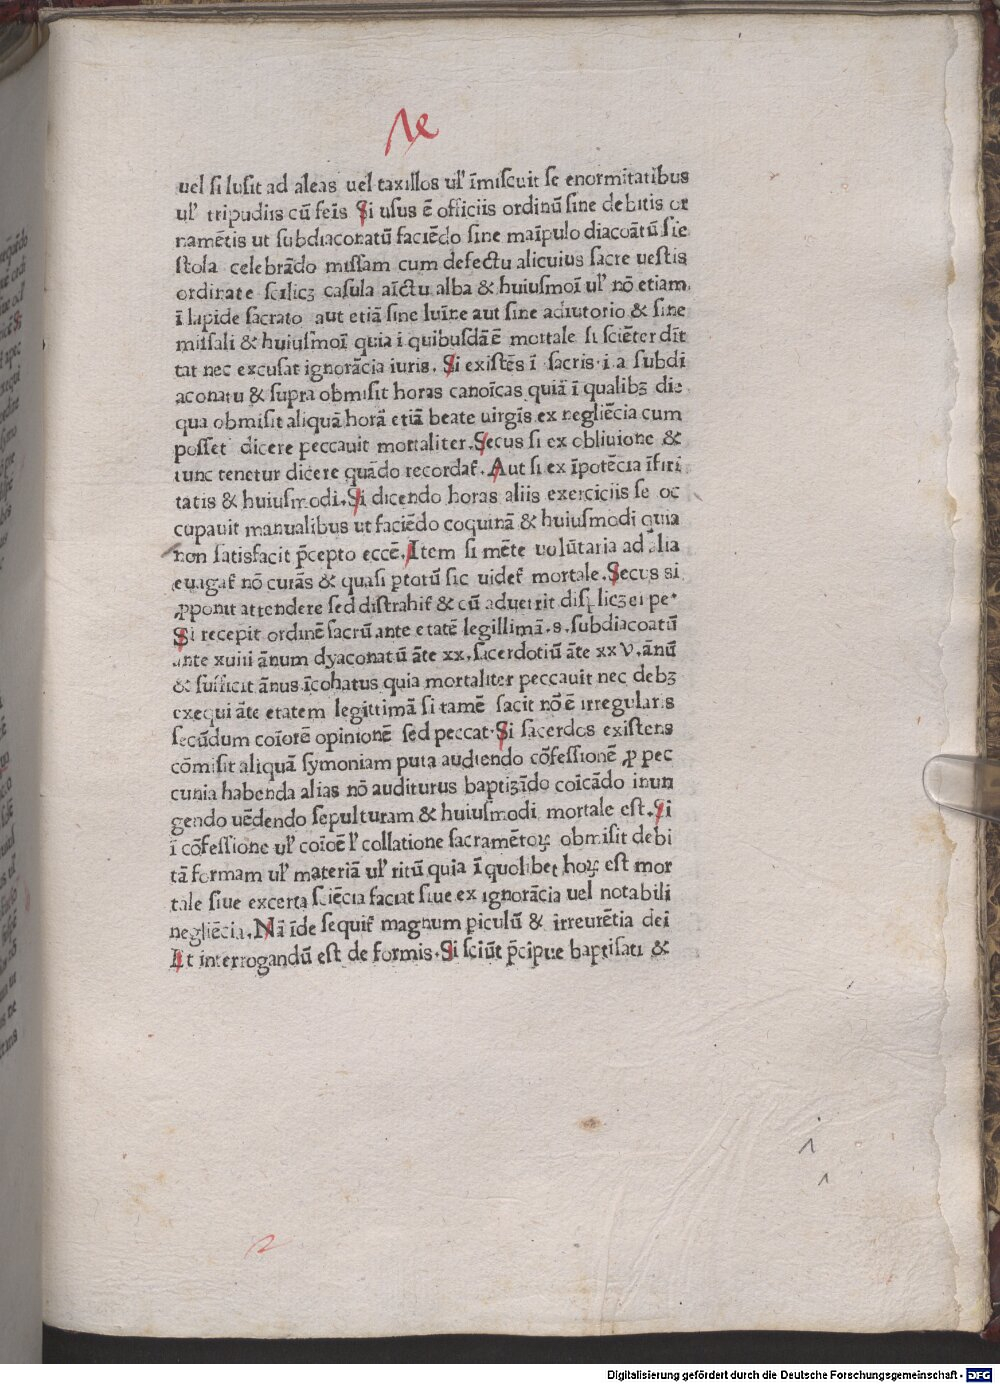 uel si lusit ad aleas uel taxillos ul' īmiscuit se enormitatibus
ul' tripudiis cū feīs Si usus ē officiis ordinū sine debitis or
namētis ut subdiaconatū faciēdo sine maīpulo diacoātū sīe
stola celebrādo missam cum defectu alicuius sacre uestis
ordinate scilicꝫ casula aīctu alba & huiusmoī ul' nō etiam
ī lapide sacrato aut etiā sine luīne aut sine adiutorio & sine
missali & huiusmoī quia i quibusdā ē mortale si sciēter dīt
tat nec excusat ignorācia iuris. Si existēs ī sacris .i. a subdi
aconatu & supra obmisit horas canoīcas quiā ī qualibꝫ die
qua obmisit aliquā horā etiā beate uirgīs ex negliēcia cum
posset dicere peccauit mortaliter. Secus si ex obliuione &
tunc tenetur dicere quādo recordat̄. Aut si ex īpotēcia īfiri
tatis & huiusmodi. Si dicendo horas aliis exerciciis se oc
cupauit manualibus ut faciēdo coquinā & huiusmodi quia
non satisfacit p̄cepto eccē. Item si mēte uolūtaria ad alia
euagat̄ nō curās & quasi ꝑtotū sic uidet̄ mortale. Secus si
ꝓponit attendere sed distrahit̄ & cū aduertit displicꝫ ei pe'
Si recepit ordinē sacrū ante etatē legittimā .s. subdiacoatū
ante xuiii ānum dyaconatū āte xx. sacerdotiū āte xxV. ānū
& sufficit ānus īcohatus quia mortaliter peccauit nec debꝫ
exequi āte etatem legittimā si tamē facit nō ē irregularis
secūdum coīorē opinionē sed peccat. Si sacerdos existens
cōmisit aliquā symoniam puta audiendo cōfessionē ꝓ pec
cunia habenda alias nō auditurus baptizādo coīcādo inun
gendo uēdendo sepulturam & huiusmodi mortale est. Si
ī cōfessione ul' coīoē l' collatione sacramētoꝝ obmisit debi
tā formam ul' materiā ul' ritū quia ī quolibet hoꝝ est mor
tale siue excerta sciēcia faciat siue ex ignorācia uel notabili
negliēcia. Nā īde sequit̄ magnum ꝑiculū & irreurētia dei
Et interrogandū est de formis. Si sciūt p̄cipue baptisati &
Digitalisierung gefördert durch die Deutsche Forschungsgemeinschaft - DFG